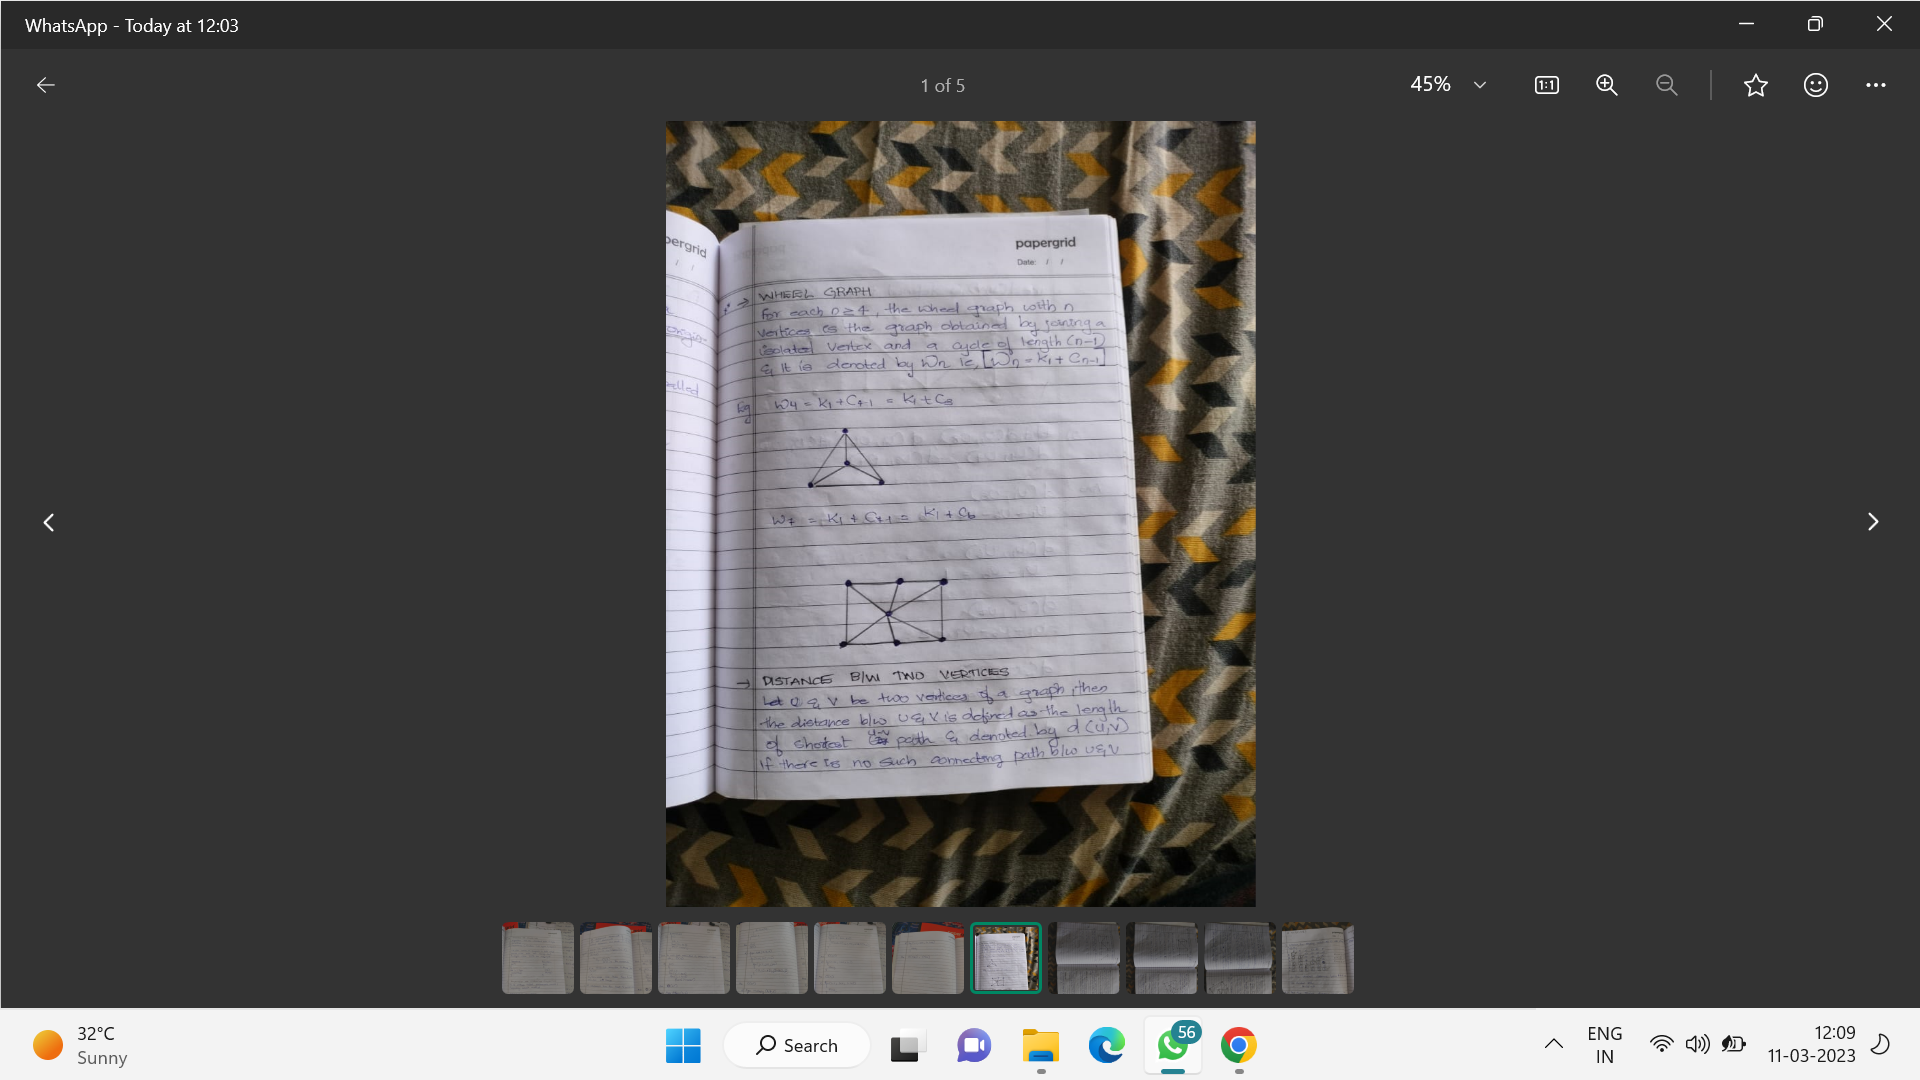 WhatsApp - Today at 12:03
1 of 5
45%
1:1
pergrid
/ /
papergrid
Date: / /
→ WHEEL GRAPH
For each n≥4, the wheel graph with n
vertices is the graph obtained by joining a
isolated vertex and a cycle of length (n-1)
& it is denoted by Wn ie, [Wn = K1 + Cn-1]
Eg W4 = K1 + C4-1 = K1 + C3
W7 = K1 + C7-1 = K1 + C6
→ DISTANCE B/W TWO VERTICES
Let U & V be two vertices of a graph, then
the distance b/w U & V is defined as the length
of shortest u-v path & denoted by d(u,v)
If there is no such connecting path b/w u & v
32°C
Sunny
Search
56
ENG
IN
12:09
11-03-2023